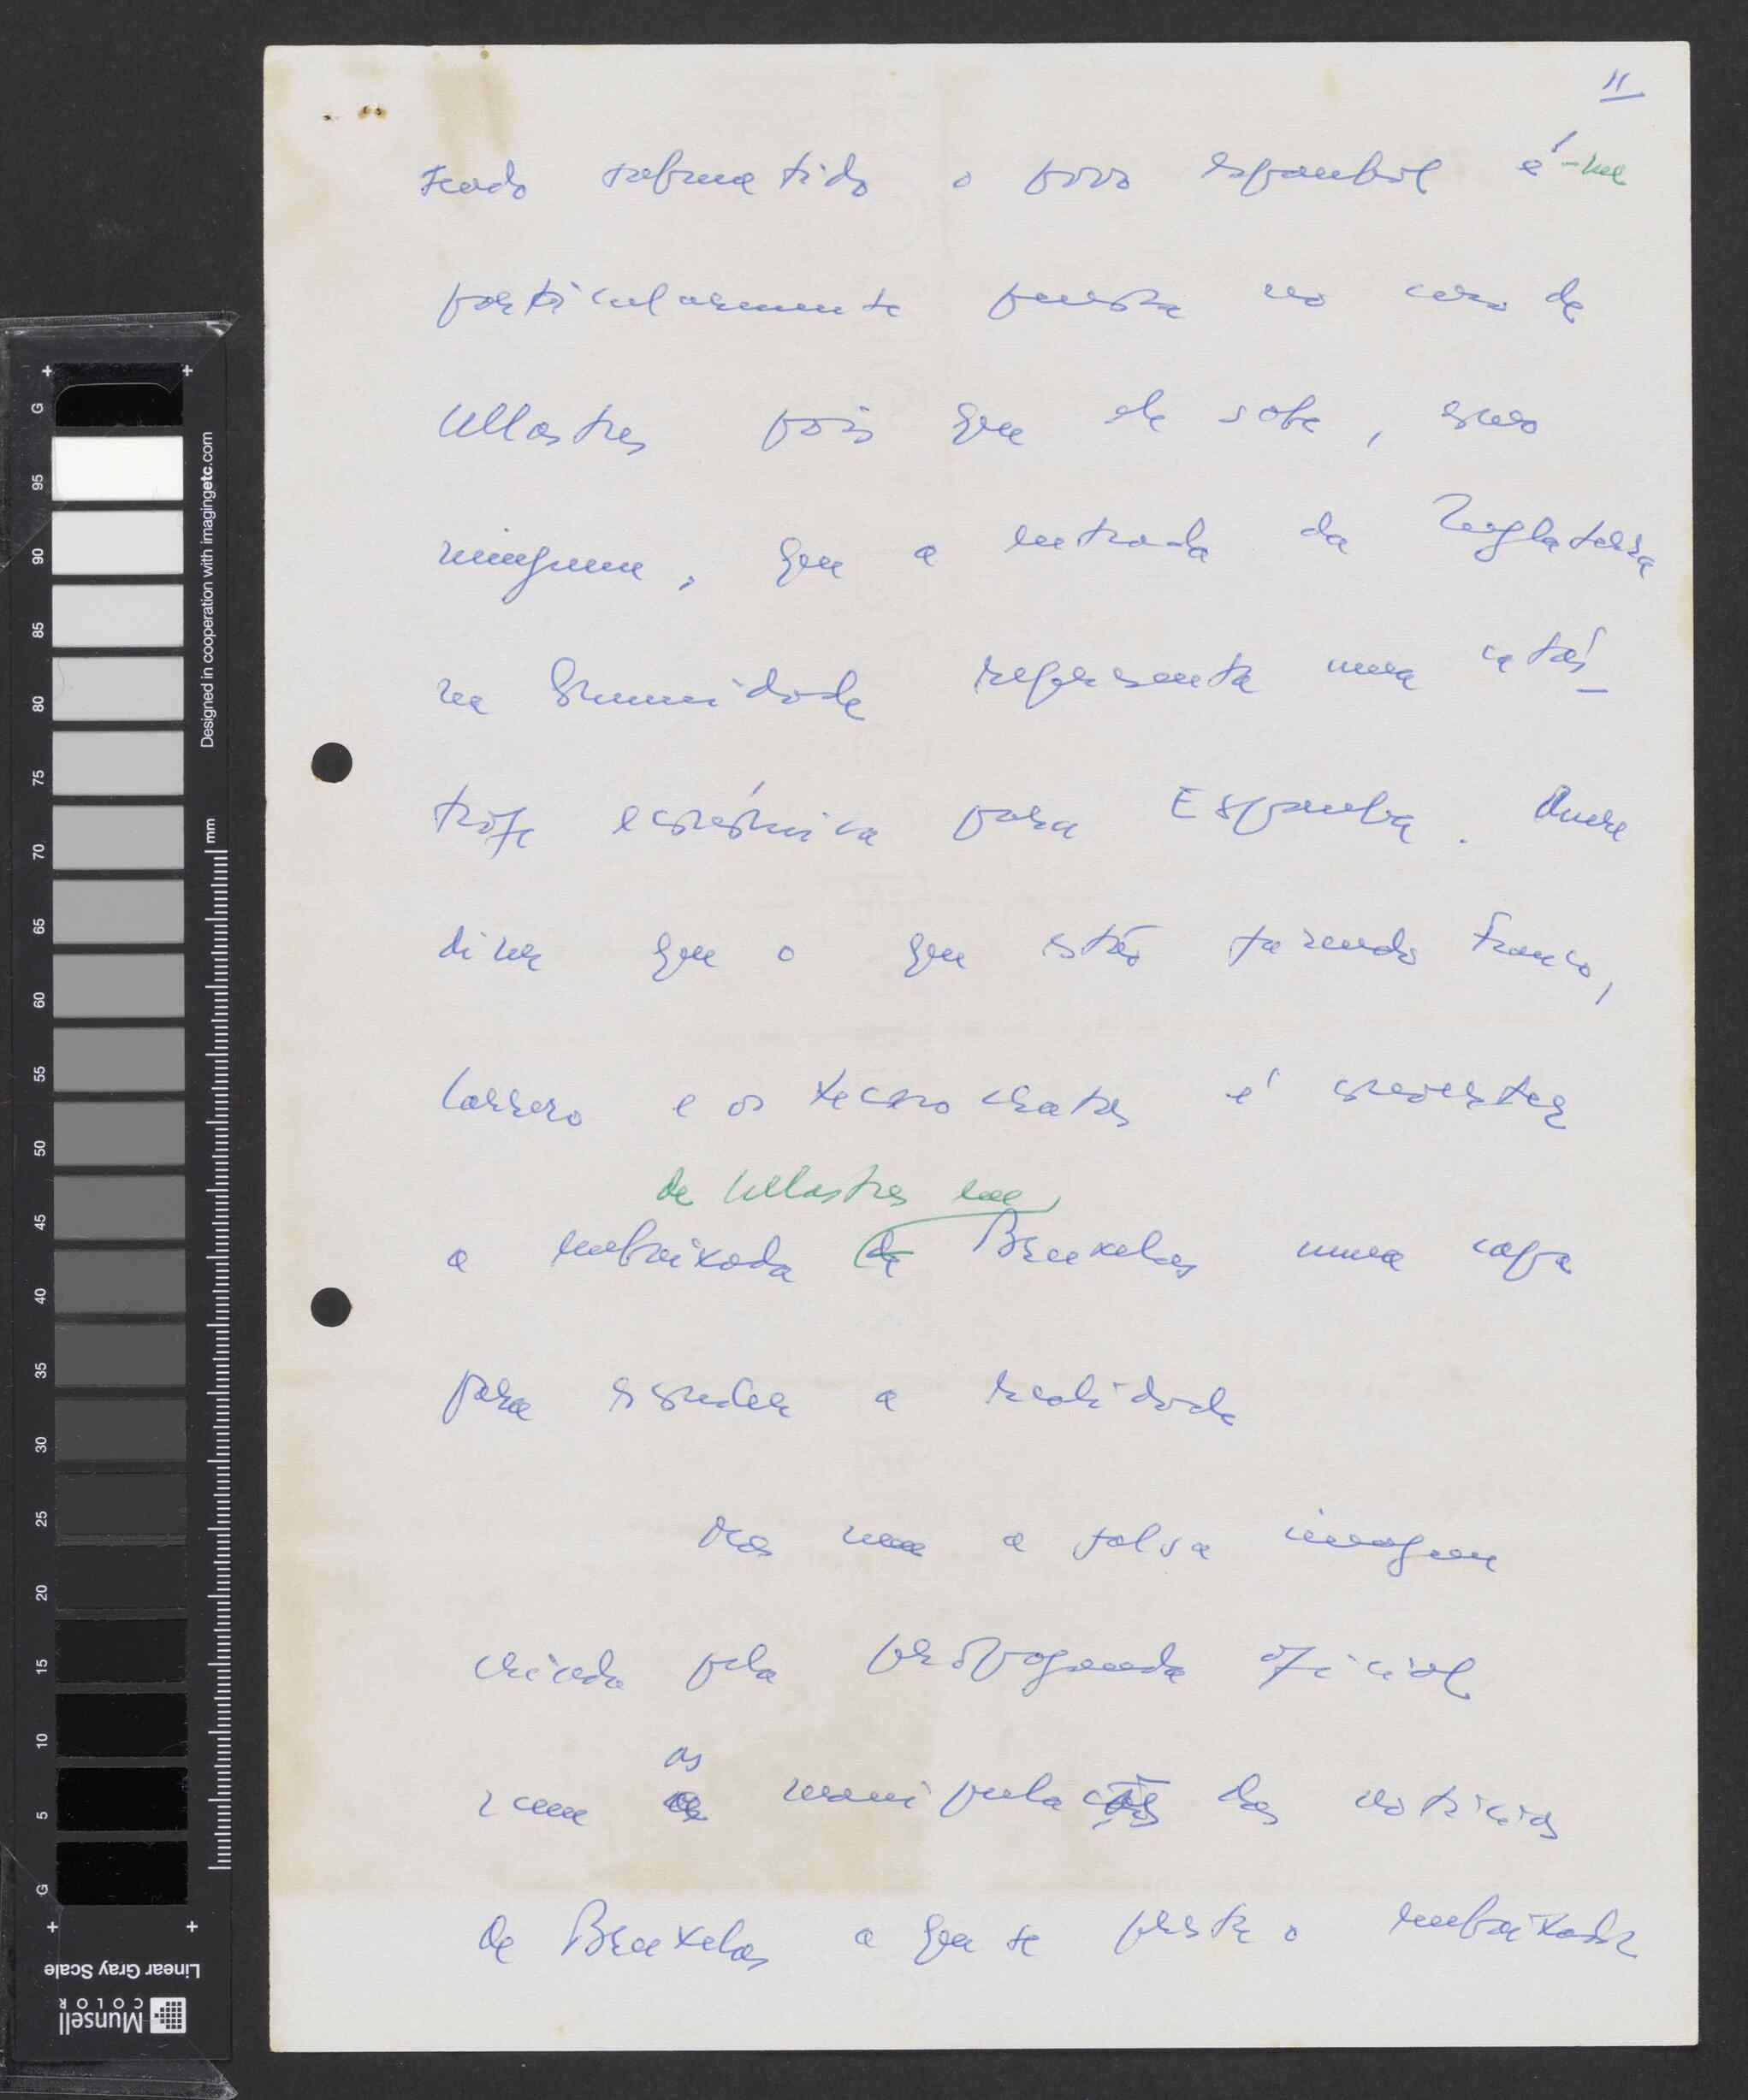 11
sendo submetido o povo espanhol é-me
particularmente penosa no caso de
Ullastres pois que ele sabe, como
ninguem, que a entrada da Inglaterra
na Comunidade representa uma catás-
trofe económica para Espanha. Quere
dizer que o que estão fazendo Franco,
Carrero e os tecnocratas é converter
de Ullastres em
a embaixada de Bruxelas numa capa
para esconder a realidade
Mas nem a falsa imagem
criada pela propaganda oficial
as
nem manipulações das noticias
de Bruxelas a que se presta o embaixador
G 95 90 85 80 75 70 65 60 55 50 45 40 35 30 25 20 15 10 5 G
mm
Designed in cooperation with imagingetc.com
Linear Gray Scale
Munsell
COLOR